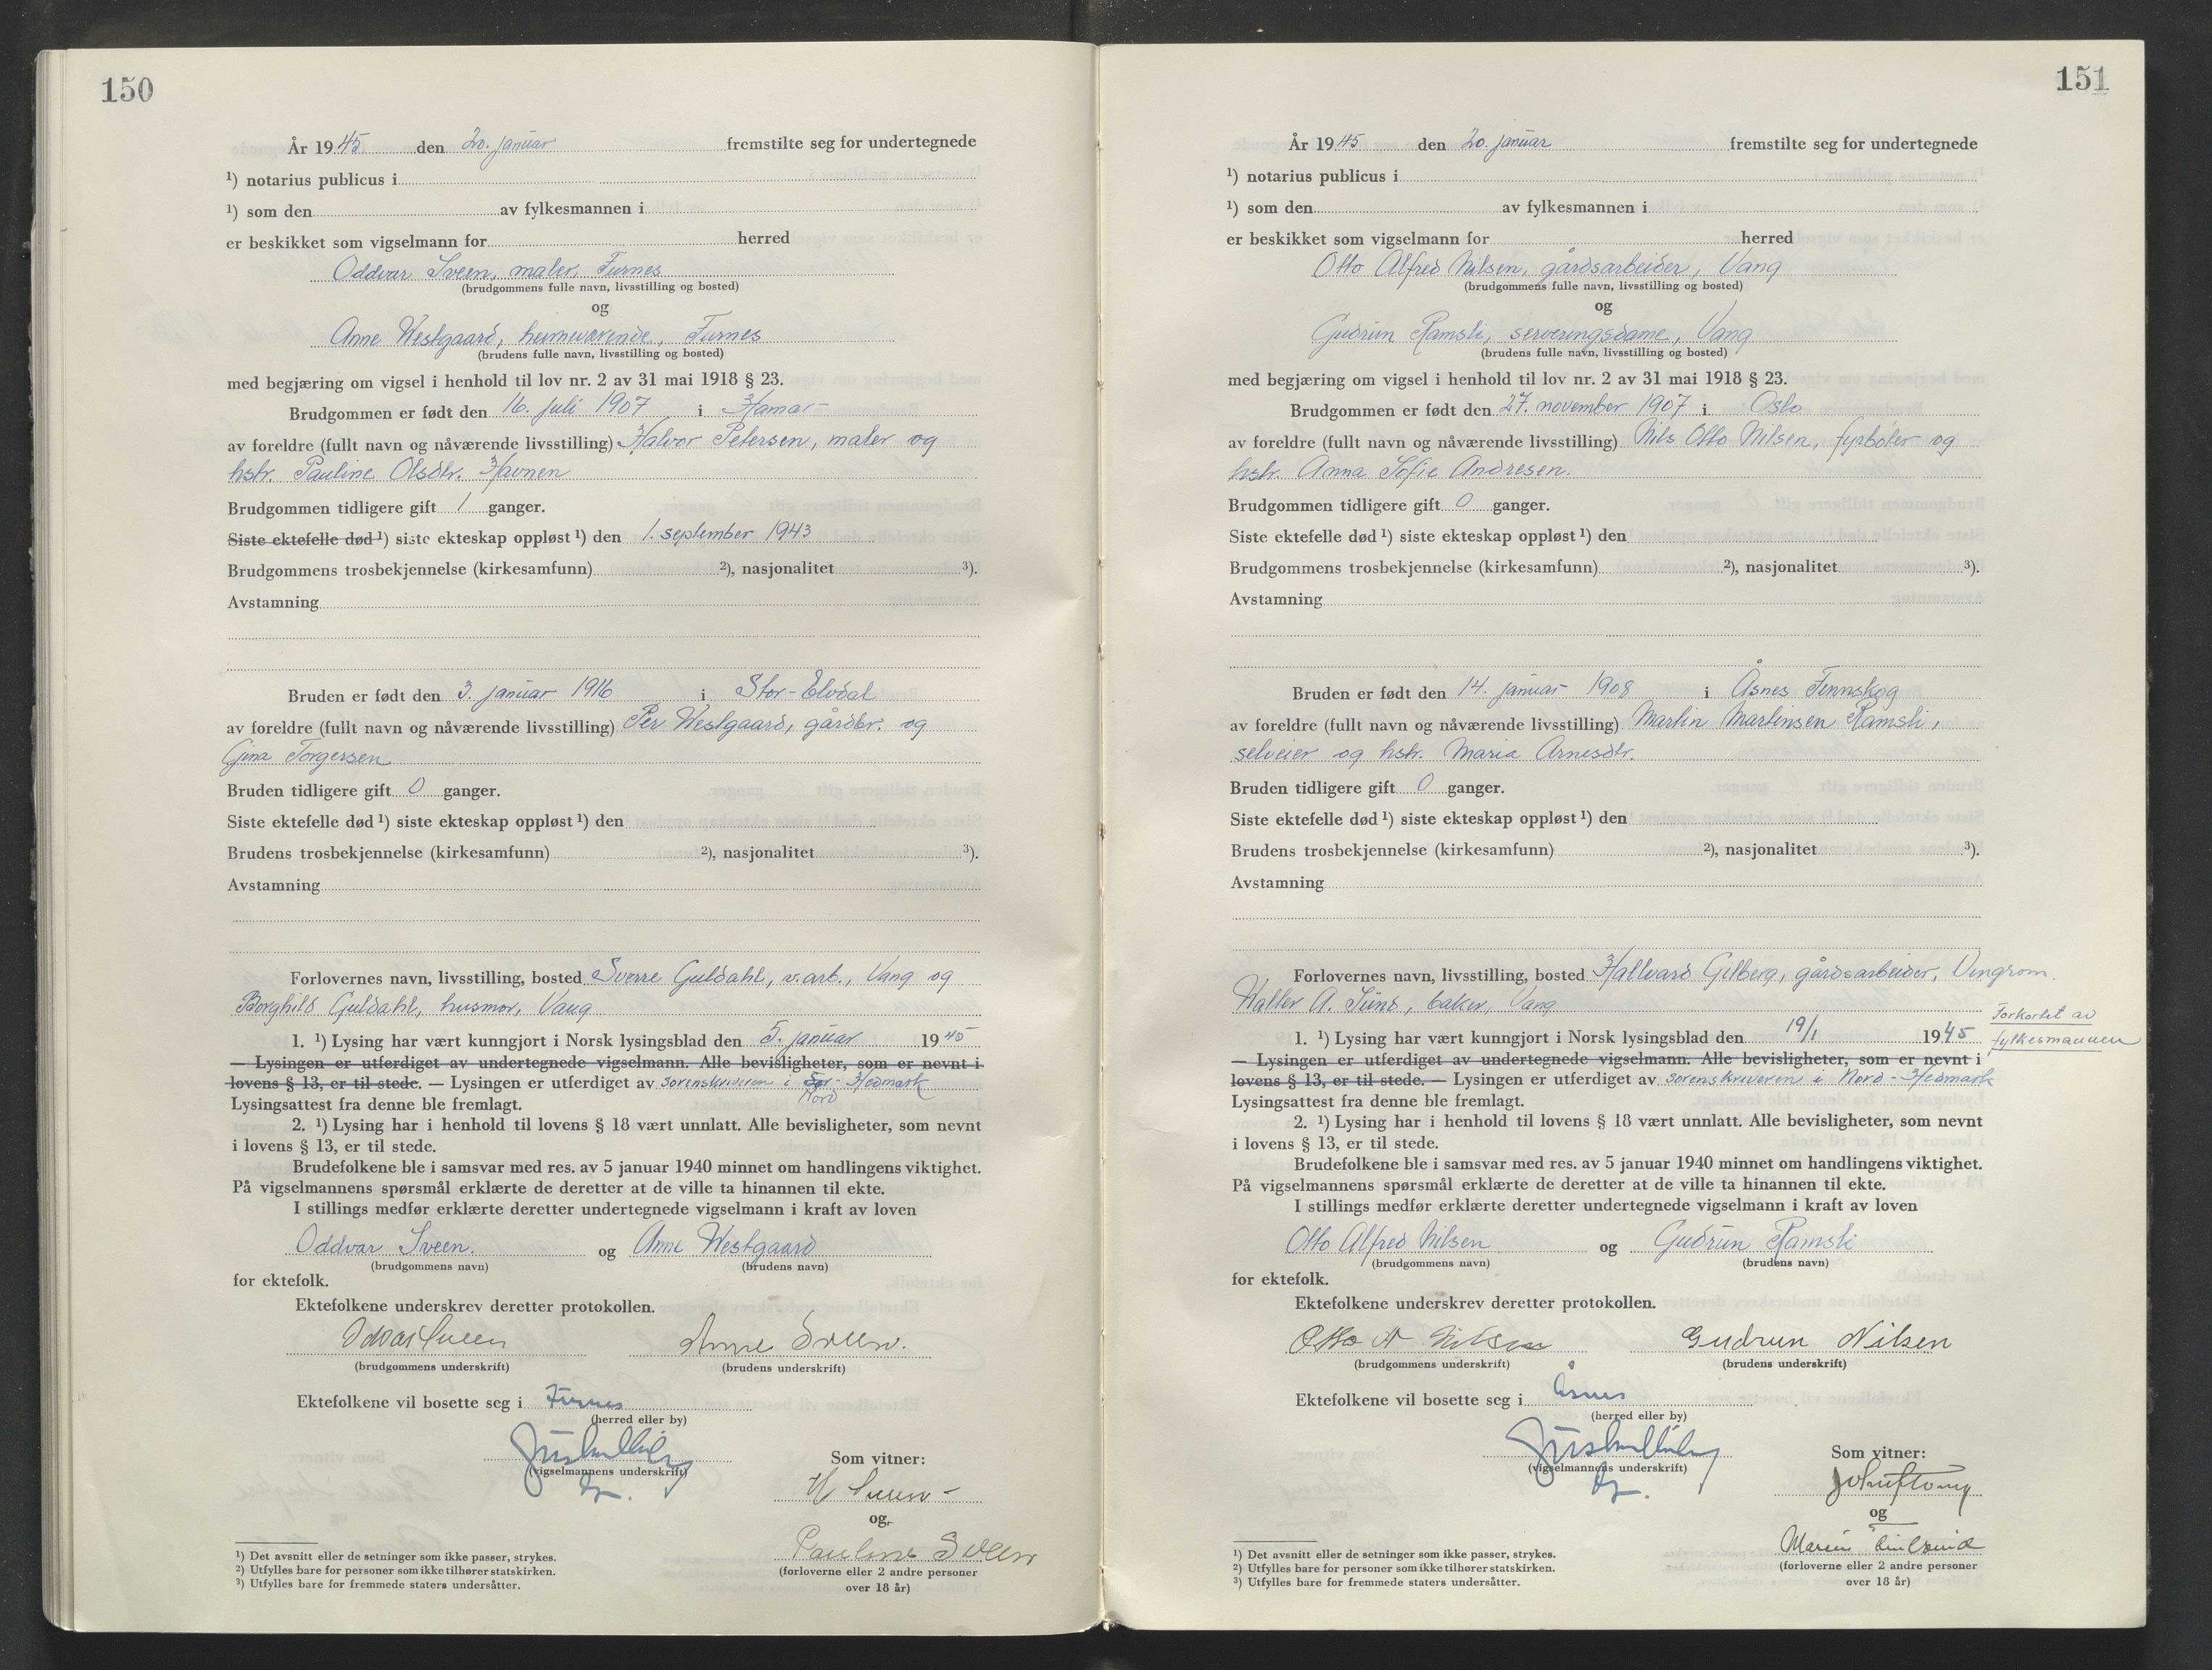 150
År 1945 den 20. januar fremstilte seg for undertegnede
¹) notarius publicus i
¹) som den av fylkesmannen i
er beskikket som vigselmann for herred
Oddvar Sveen, maler, Furnes
(brudgommens fulle navn, livsstilling og bosted)
og
Anne Westgaard, heimeværende, Furnes
(brudens fulle navn, livsstilling og bosted)
med begjæring om vigsel i henhold til lov nr. 2 av 31 mai 1918 § 23.
Brudgommen er født den 16. juli 1907 i Hamar
av foreldre (fullt navn og nåværende livsstilling) Halvor Petersen, maler og
hstr. Pauline Olsdtr. Havnen
Brudgommen tidligere gift 1 ganger.
Siste ektefelle død ¹) siste ekteskap oppløst ¹) den 1. september 1943
Brudgommens trosbekjennelse (kirkesamfunn) ²), nasjonalitet ³).
Avstamning
Bruden er født den 3. januar 1916 i Stor-Elvdal
av foreldre (fullt navn og nåværende livsstilling) Per Westgaard, gårdbr. og
Gina Torgersen
Bruden tidligere gift 0 ganger.
Siste ektefelle død ¹) siste ekteskap oppløst ¹) den
Brudens trosbekjennelse (kirkesamfunn) ²), nasjonalitet ³).
Avstamning
Forlovernes navn, livsstilling, bosted Sverre Guldahl, v.arb., Vang og
Borghild Guldahl, husmor, Vang
1. ¹) Lysing har vært kunngjort i Norsk lysingsblad den 5. januar 1945
— Lysingen er utferdiget av undertegnede vigselmann. Alle bevisligheter, som er nevnt i
lovens § 13, er til stede. — Lysingen er utferdiget av sorenskriveren i Sør-Hedmark
Nord
Lysingsattest fra denne ble fremlagt.
2. ¹) Lysing har i henhold til lovens § 18 vært unnlatt. Alle bevisligheter, som nevnt
i lovens § 13, er til stede.
Brudefolkene ble i samsvar med res. av 5 januar 1940 minnet om handlingens viktighet.
På vigselmannens spørsmål erklærte de deretter at de ville ta hinannen til ekte.
I stillings medfør erklærte deretter undertegnede vigselmann i kraft av loven
Oddvar Sveen. og Anne Westgaard
(brudgommens navn) (brudens navn)
for ektefolk.
Ektefolkene underskrev deretter protokollen.
Oddvar Sveen Anne Sveen.
(brudgommens underskrift) (brudens underskrift)
Ektefolkene vil bosette seg i Furnes
(herred eller by)
(vigselmannens underskrift)
Som vitner:
H Sveen
og
Pauline Sveen
(forloverne eller 2 andre personer
over 18 år)
¹) Det avsnitt eller de setninger som ikke passer, strykes.
²) Utfylles bare for personer som ikke tilhører statskirken.
³) Utfylles bare for fremmede staters undersåtter.
151
År 1945 den 20. januar fremstilte seg for undertegnede
¹) notarius publicus i
¹) som den av fylkesmannen i
er beskikket som vigselmann for herred
Otto Alfred Nilsen, gårdsarbeider, Vang
(brudgommens fulle navn, livsstilling og bosted)
og
Gudrun Ramsli, serveringsdame, Vang
(brudens fulle navn, livsstilling og bosted)
med begjæring om vigsel i henhold til lov nr. 2 av 31 mai 1918 § 23.
Brudgommen er født den 27. november 1907 i Oslo
av foreldre (fullt navn og nåværende livsstilling) Nils Otto Nilsen, fyrbøter og
hstr. Anna Sofie Andresen.
Brudgommen tidligere gift 0 ganger.
Siste ektefelle død ¹) siste ekteskap oppløst ¹) den
Brudgommens trosbekjennelse (kirkesamfunn) ²), nasjonalitet ³).
Avstamning
Bruden er født den 14. januar 1908 i Åsnes Finnskog
av foreldre (fullt navn og nåværende livsstilling) Martin Martinsen Ramsli,
selveier og hstr. Maria Arnesdtr.
Bruden tidligere gift 0 ganger.
Siste ektefelle død ¹) siste ekteskap oppløst ¹) den
Brudens trosbekjennelse (kirkesamfunn) ²), nasjonalitet ³).
Avstamning
Forlovernes navn, livsstilling, bosted Hallvard Gilberg, gårdsarbeider, Vingrom.
Walter A. Sund, baker, Vang
1. ¹) Lysing har vært kunngjort i Norsk lysingsblad den 19/1 1945
Forkortet av
fylkesmannen
— Lysingen er utferdiget av undertegnede vigselmann. Alle bevisligheter, som er nevnt i
lovens § 13, er til stede. — Lysingen er utferdiget av sorenskriveren i Nord-Hedmark
Lysingsattest fra denne ble fremlagt.
2. ¹) Lysing har i henhold til lovens § 18 vært unnlatt. Alle bevisligheter, som nevnt
i lovens § 13, er til stede.
Brudefolkene ble i samsvar med res. av 5 januar 1940 minnet om handlingens viktighet.
På vigselmannens spørsmål erklærte de deretter at de ville ta hinannen til ekte.
I stillings medfør erklærte deretter undertegnede vigselmann i kraft av loven
Otto Alfred Nilsen og Gudrun Ramsli
(brudgommens navn) (brudens navn)
for ektefolk.
Ektefolkene underskrev deretter protokollen.
Otto A Nilsen Gudrun Nilsen
(brudgommens underskrift) (brudens underskrift)
Ektefolkene vil bosette seg i Åsnes
(herred eller by)
(vigselmannens underskrift)
Som vitner:
og
(forloverne eller 2 andre personer
over 18 år)
¹) Det avsnitt eller de setninger som ikke passer, strykes.
²) Utfylles bare for personer som ikke tilhører statskirken.
³) Utfylles bare for fremmede staters undersåtter.